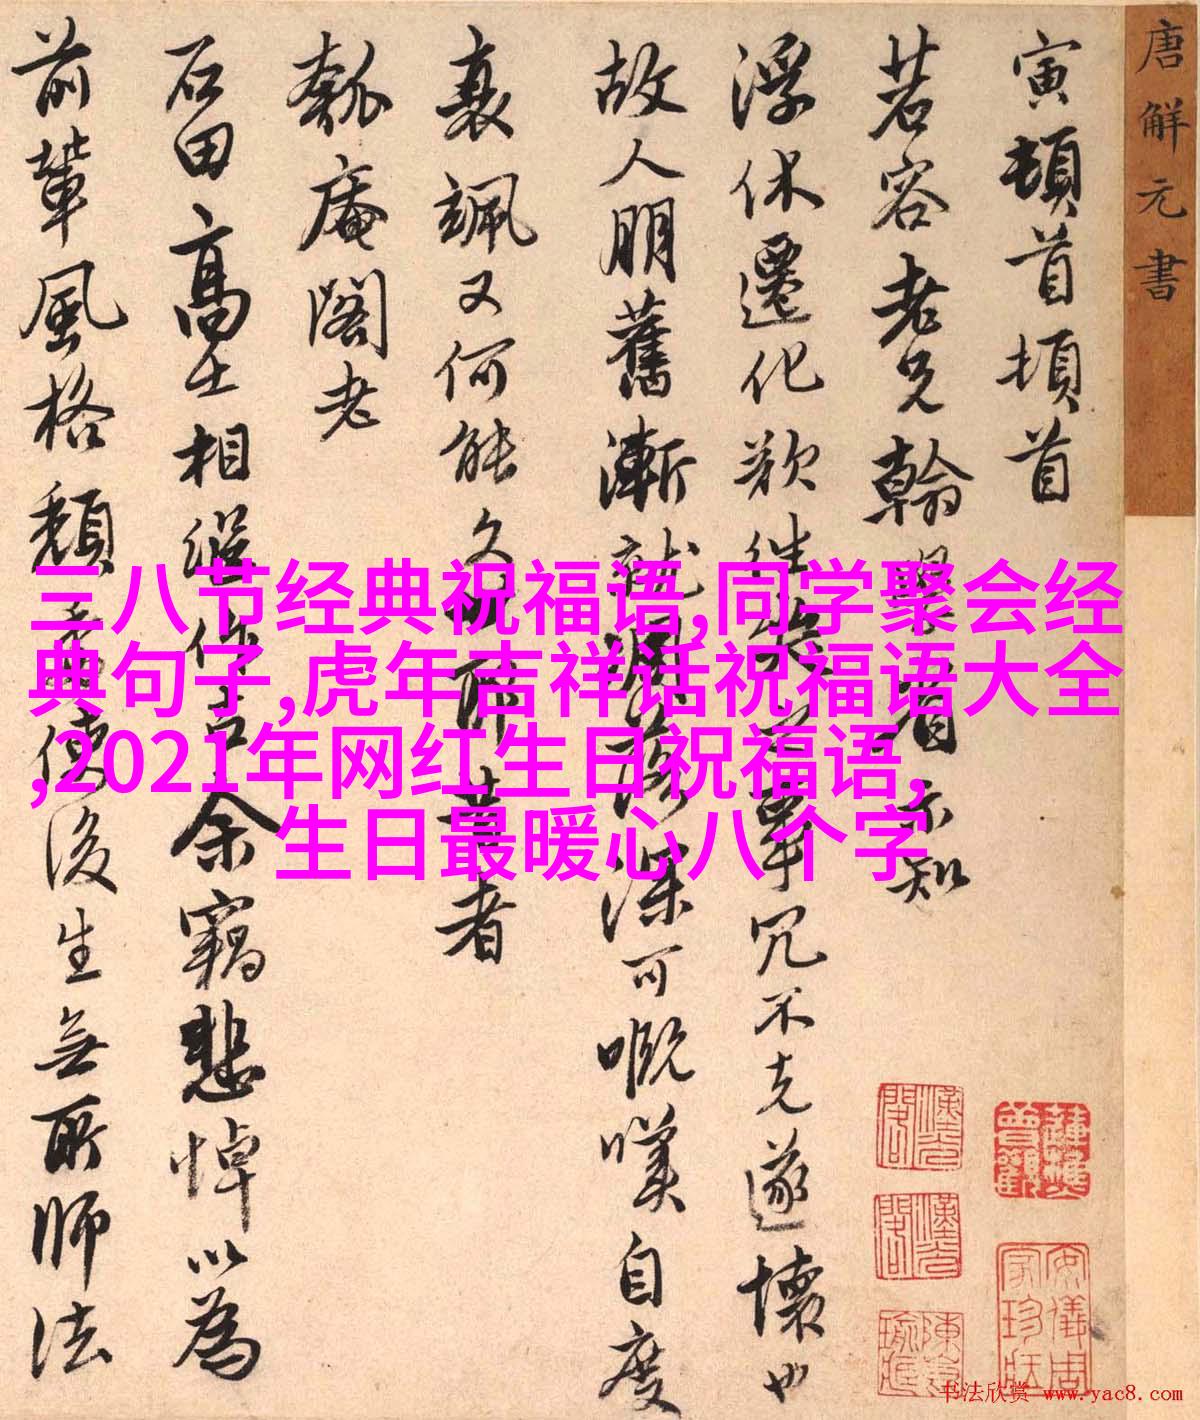 唐解元書
寅頓首頓首
若容老兄翰看不知
浮休遷化欲往冗不克遂懷也
故人朋舊漸就凋落深可嘅嘆自度
衰颯又何能久者
瓠庵閣老
石田高士相繼作古余竊悲悼以為
前輩風格頹使後生無所師法
三八节经典祝福语,同学聚会经
典句子,虎年吉祥话祝福语大全
,2021年网红生日祝福语,
生日最暖心八个字
书法欣赏 www.yac8.com